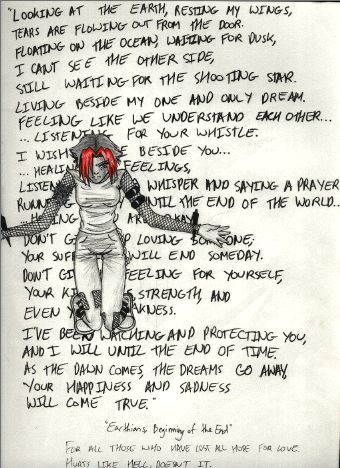 "LOOKING AT THE EARTH, RESTING MY WINGS,
TEARS ARE FLOWING OUT FROM THE DOOR.
FLOATING ON THE OCEAN, WAITING FOR DUSK,
I CANT SEE THE OTHER SIDE,
STILL WAITING FOR THE SHOOTING STAR.
LIVING BESIDE MY ONE AND ONLY DREAM.
FEELING LIKE WE UNDERSTAND EACH OTHER...
... LISTENING FOR YOUR WHISTLE.
I WISH BESIDE YOU...
... FEELINGS,
WHISPER AND SAYING A PRAYER
UNTIL THE END OF THE WORLD...
DON'T LOVING
YOUR WILL END SOMEDAY.
DON'T FEELING FOR YOURSELF,
YOUR STRENGTH, AND
EVEN
I'VE BEEN WATCHING AND PROTECTING YOU,
AND I WILL UNTIL THE END OF TIME.
AS THE DAWN COMES, THE DREAMS GO AWAY,
YOUR HAPPINESS AND SADNESS
WILL COME TRUE."
"Earthians, Beginning of the End"
FOR ALL THOSE WHO HAVE LOST ALL HOPE FOR LOVE.
HURTS LIKE HELL, DOESNT IT.